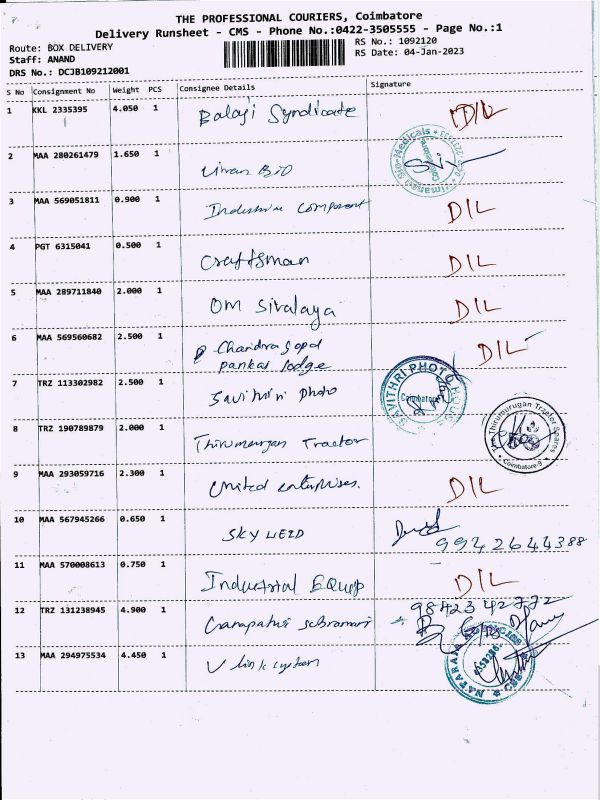 THE PROFESSIONAL COURIERS, Coimbatore
Delivery Runsheet - CMS - Phone No.:0422-3505555 - Page No.:1
Route: BOX DELIVERY
RS No.: 1092120
Staff: ANAND
RS Date: 04-Jan-2023
DRS No.: DCJB109212001
S No Consignment No Weight PCS Consignee Details Signature
1 KKL 2335395 4.050 1 Balaji Syndicate D/L
2 MAA 280261479 1.650 1 Viman Bio
3 MAA 569051811 0.900 1 Industrial Component D/L
4 PGT 6315041 0.500 1 Craftsman D/L
5 MAA 289711840 2.000 1 OM Sivalaya D/L
6 MAA 569560682 2.500 1 Chandragopal D/L
Pankaj lodge
7 TRZ 113302982 2.500 1 Savithri Photo SAVITHRI PHOTO HOUSE Coimbatore
8 TRZ 190789879 2.000 1 Thirumurgan Tractor Thirumurugan Tractor Spares Coimbatore-9
9 MAA 293059716 2.300 1 United enterprises. D/L
10 MAA 567945266 0.650 1 SKY WELD
9942644388
11 MAA 570008613 0.750 1 Industrial Equip D/L
9842342772
12 TRZ 131238945 4.900 1 Ganapathi Subramani
13 MAA 294975534 4.450 1 V link system